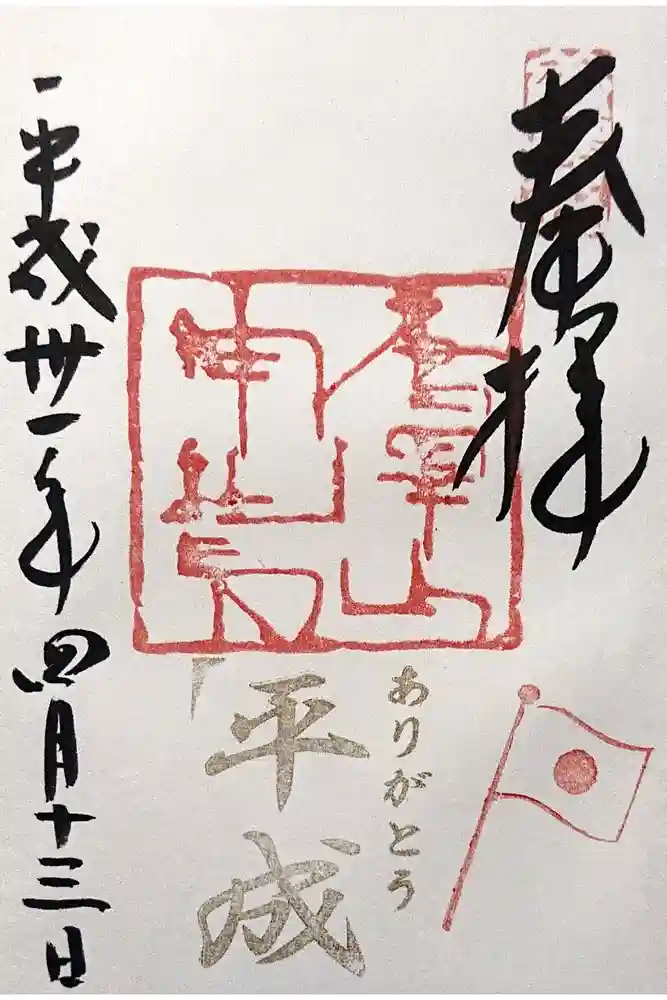 奉拝
ありがとう
平成
平成卅一年四月十三日